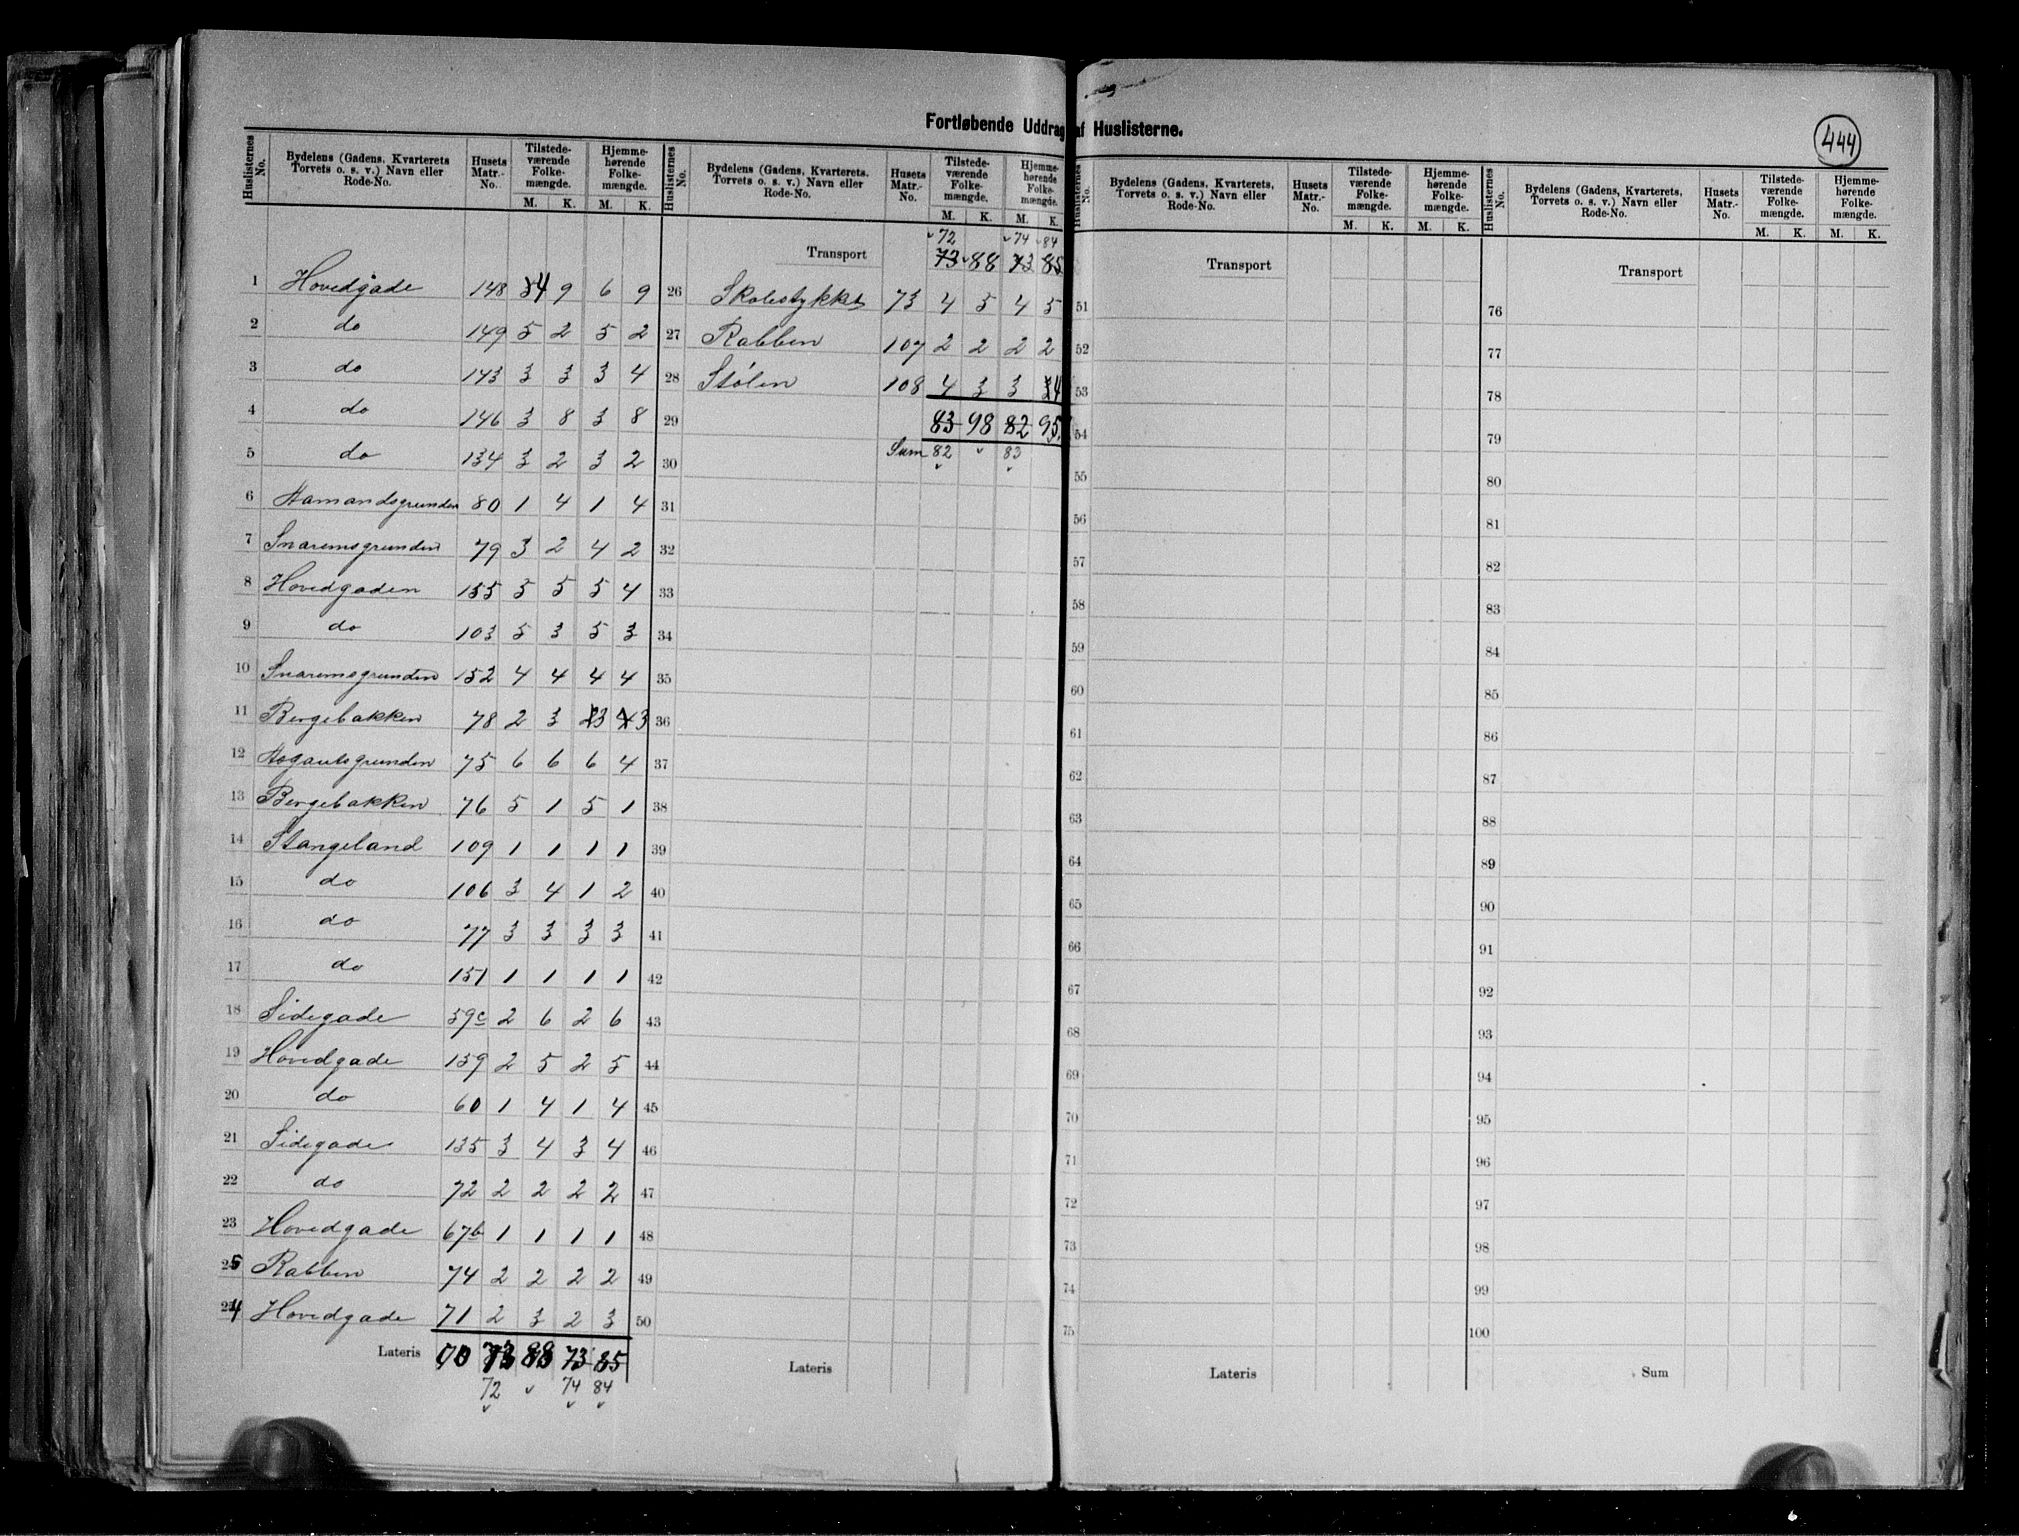 444
Fortløbende Uddrag af Huslisterne.
Huslisternes No. | Bydelens (Gadens, Kvarterets Torvets o. s. v.) Navn eller Rode-No. | Husets Matr.-No. | Tilstedeværende Folkemængde. M. K. | Hjemmehørende Folkemængde. M. K.
1 Hovedgade 148 4 9 6 9
2 do 149 5 2 5 2
3 do 143 3 3 3 4
4 do 146 3 8 3 8
5 do 134 3 2 3 2
6 Aamandsgrunden 80 1 4 1 4
7 Snaremsgrunden 79 3 2 4 2
8 Hovedgaden 155 5 5 5 4
9 do 103 5 3 5 3
10 Snaremsgrunden 152 4 4 4 4
11 Bergebakken 78 2 3 3 3
12 75 6 6 6 4
13 Bergebakken 76 5 1 5 1
14 Stangeland 109 1 1 1 1
15 do 106 3 4 1 2
16 do 77 3 3 3 3
17 do 151 1 1 1 1
18 Sidegade 59c 2 6 2 6
19 Hovedgade 159 2 5 2 5
20 do 60 1 4 1 4
21 Sidegade 135 3 4 3 4
22 do 72 2 2 2 2
23 Hovedgade 67b 1 1 1 1
25 Rabben 74 2 2 2 2
24 Hovedgade 71 2 3 2 3
Lateris 70 73 88 73 85
72 74 84
Huslisternes No. | Bydelens (Gadens, Kvarterets, Torvets o. s. v.) Navn eller Rode-No. | Husets Matr.-No. | Tilstedeværende Folkemængde. M. K. | Hjemmehørende Folkemængde. M. K.
72 74 84
Transport 73 88 73 85
26 Skolestykket 73 4 5 4 5
27 Rabben 107 2 2 2 2
28 Stølen 108 4 3 3 4
29 83 98 82 95
30 Sum 82 83
31
32
33
34
35
36
37
38
39
40
41
42
43
44
45
46
47
48
49
50
Lateris
Huslisternes No. | Bydelens (Gadens, Kvarterets, Torvets o. s. v.) Navn eller Rode-No. | Husets Matr.-No. | Tilstedeværende Folkemængde. M. K. | Hjemmehørende Folkemængde. M. K.
Transport
51
52
53
54
55
56
57
58
59
60
61
62
63
64
65
66
67
68
69
70
71
72
73
74
75
Lateris
Huslisternes No. | Bydelens (Gadens, Kvarterets, Torvets o. s. v.) Navn eller Rode-No. | Husets Matr.-No. | Tilstedeværende Folkemængde. M. K. | Hjemmehørende Folkemængde. M. K.
Transport
76
77
78
79
80
81
82
83
84
85
86
87
88
89
90
91
92
93
94
95
96
97
98
99
100
Sum